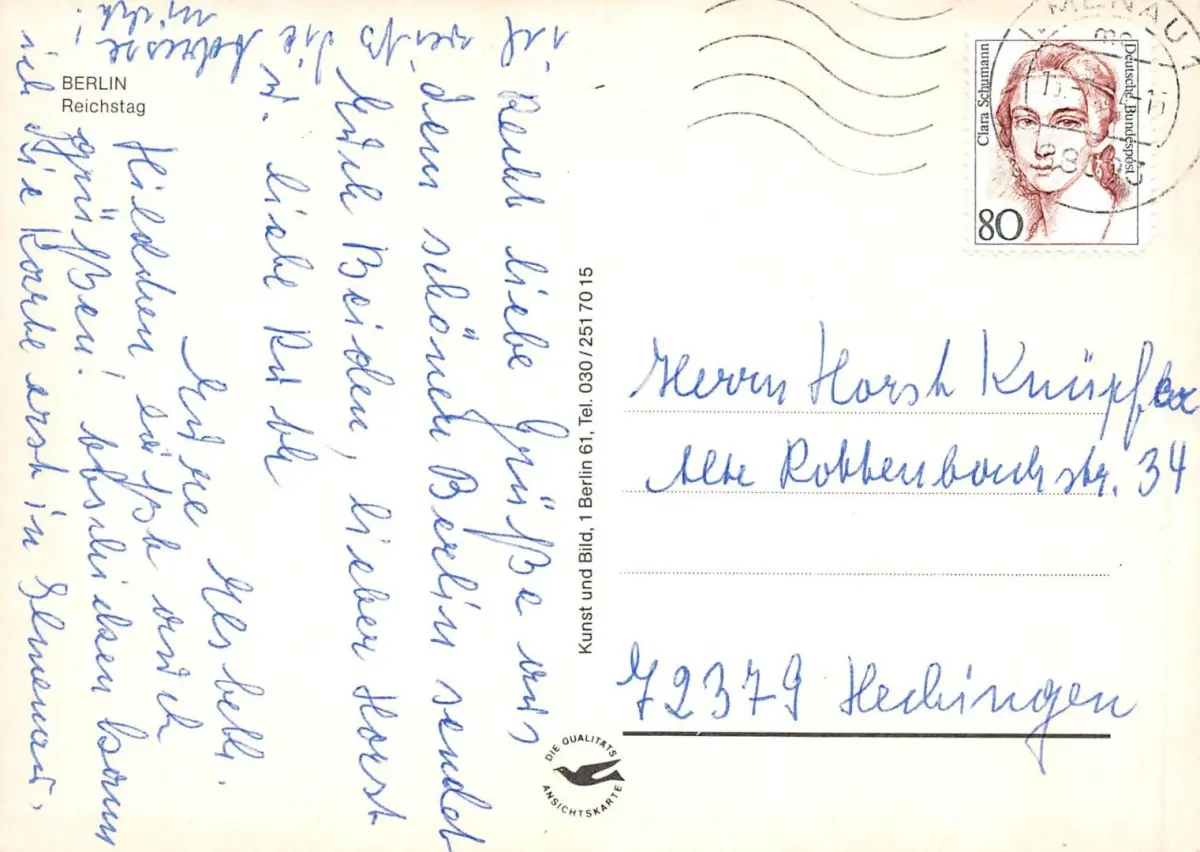 BERLIN
Reichstag
Recht liebe Grüße aus
dem schönen Berlin sendet
Euch Beiden, lieber Horst
u. liebe Ruth
Eure Elsbeth.
Hildchen läßt auch
grüßen! Abschicken kann
ich die Karte erst in Ilmenau,
ich weiß die Adresse
nicht!
Kunst und Bild, 1 Berlin 61, Tel. 030 / 251 70 15
DIE QUALITÄTS
ANSICHTSKARTE
Clara Schumann
Deutsche Bundespost
80
ILMENAU 1
98693
Herrn Horst Knüpfer
Alte Rottenbachstr. 34
72379 Hechingen